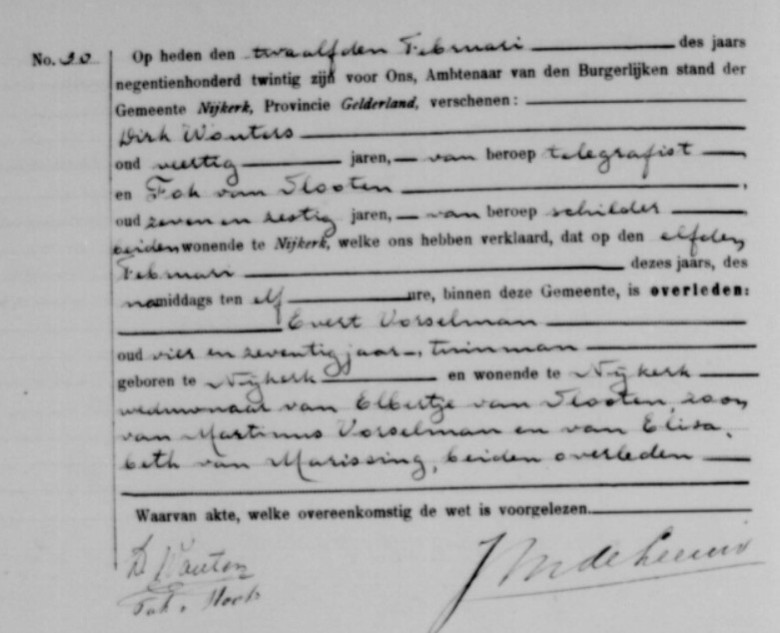 No. 20 Op heden den twaalfden Februari des jaars
negentienhonderd twintig zijn voor Ons, Ambtenaar van den Burgerlijken stand der
Gemeente Nijkerk, Provincie Gelderland, verschenen:
Dirk Wouters
oud veertig jaren, van beroep telegrafist
en Fok van Slooten,
oud zeven en zestig jaren, van beroep schilder
beiden wonende te Nijkerk, welke ons hebben verklaard, dat op den elfden
Februari dezes jaars, des
namiddags ten elf ure, binnen deze Gemeente, is overleden:
Evert Vorselman
oud vier en zeventig jaar, tuinman
geboren te Nijkerk en wonende te Nijkerk
weduwnaar van Elbertje van Slooten, zoon
van Martinus Vorselman en van Elisa,
beth van Marissing, beiden overleden
Waarvan akte, welke overeenkomstig de wet is voorgelezen.
D Wouters
JM de Leeuw
Fok v Slooten